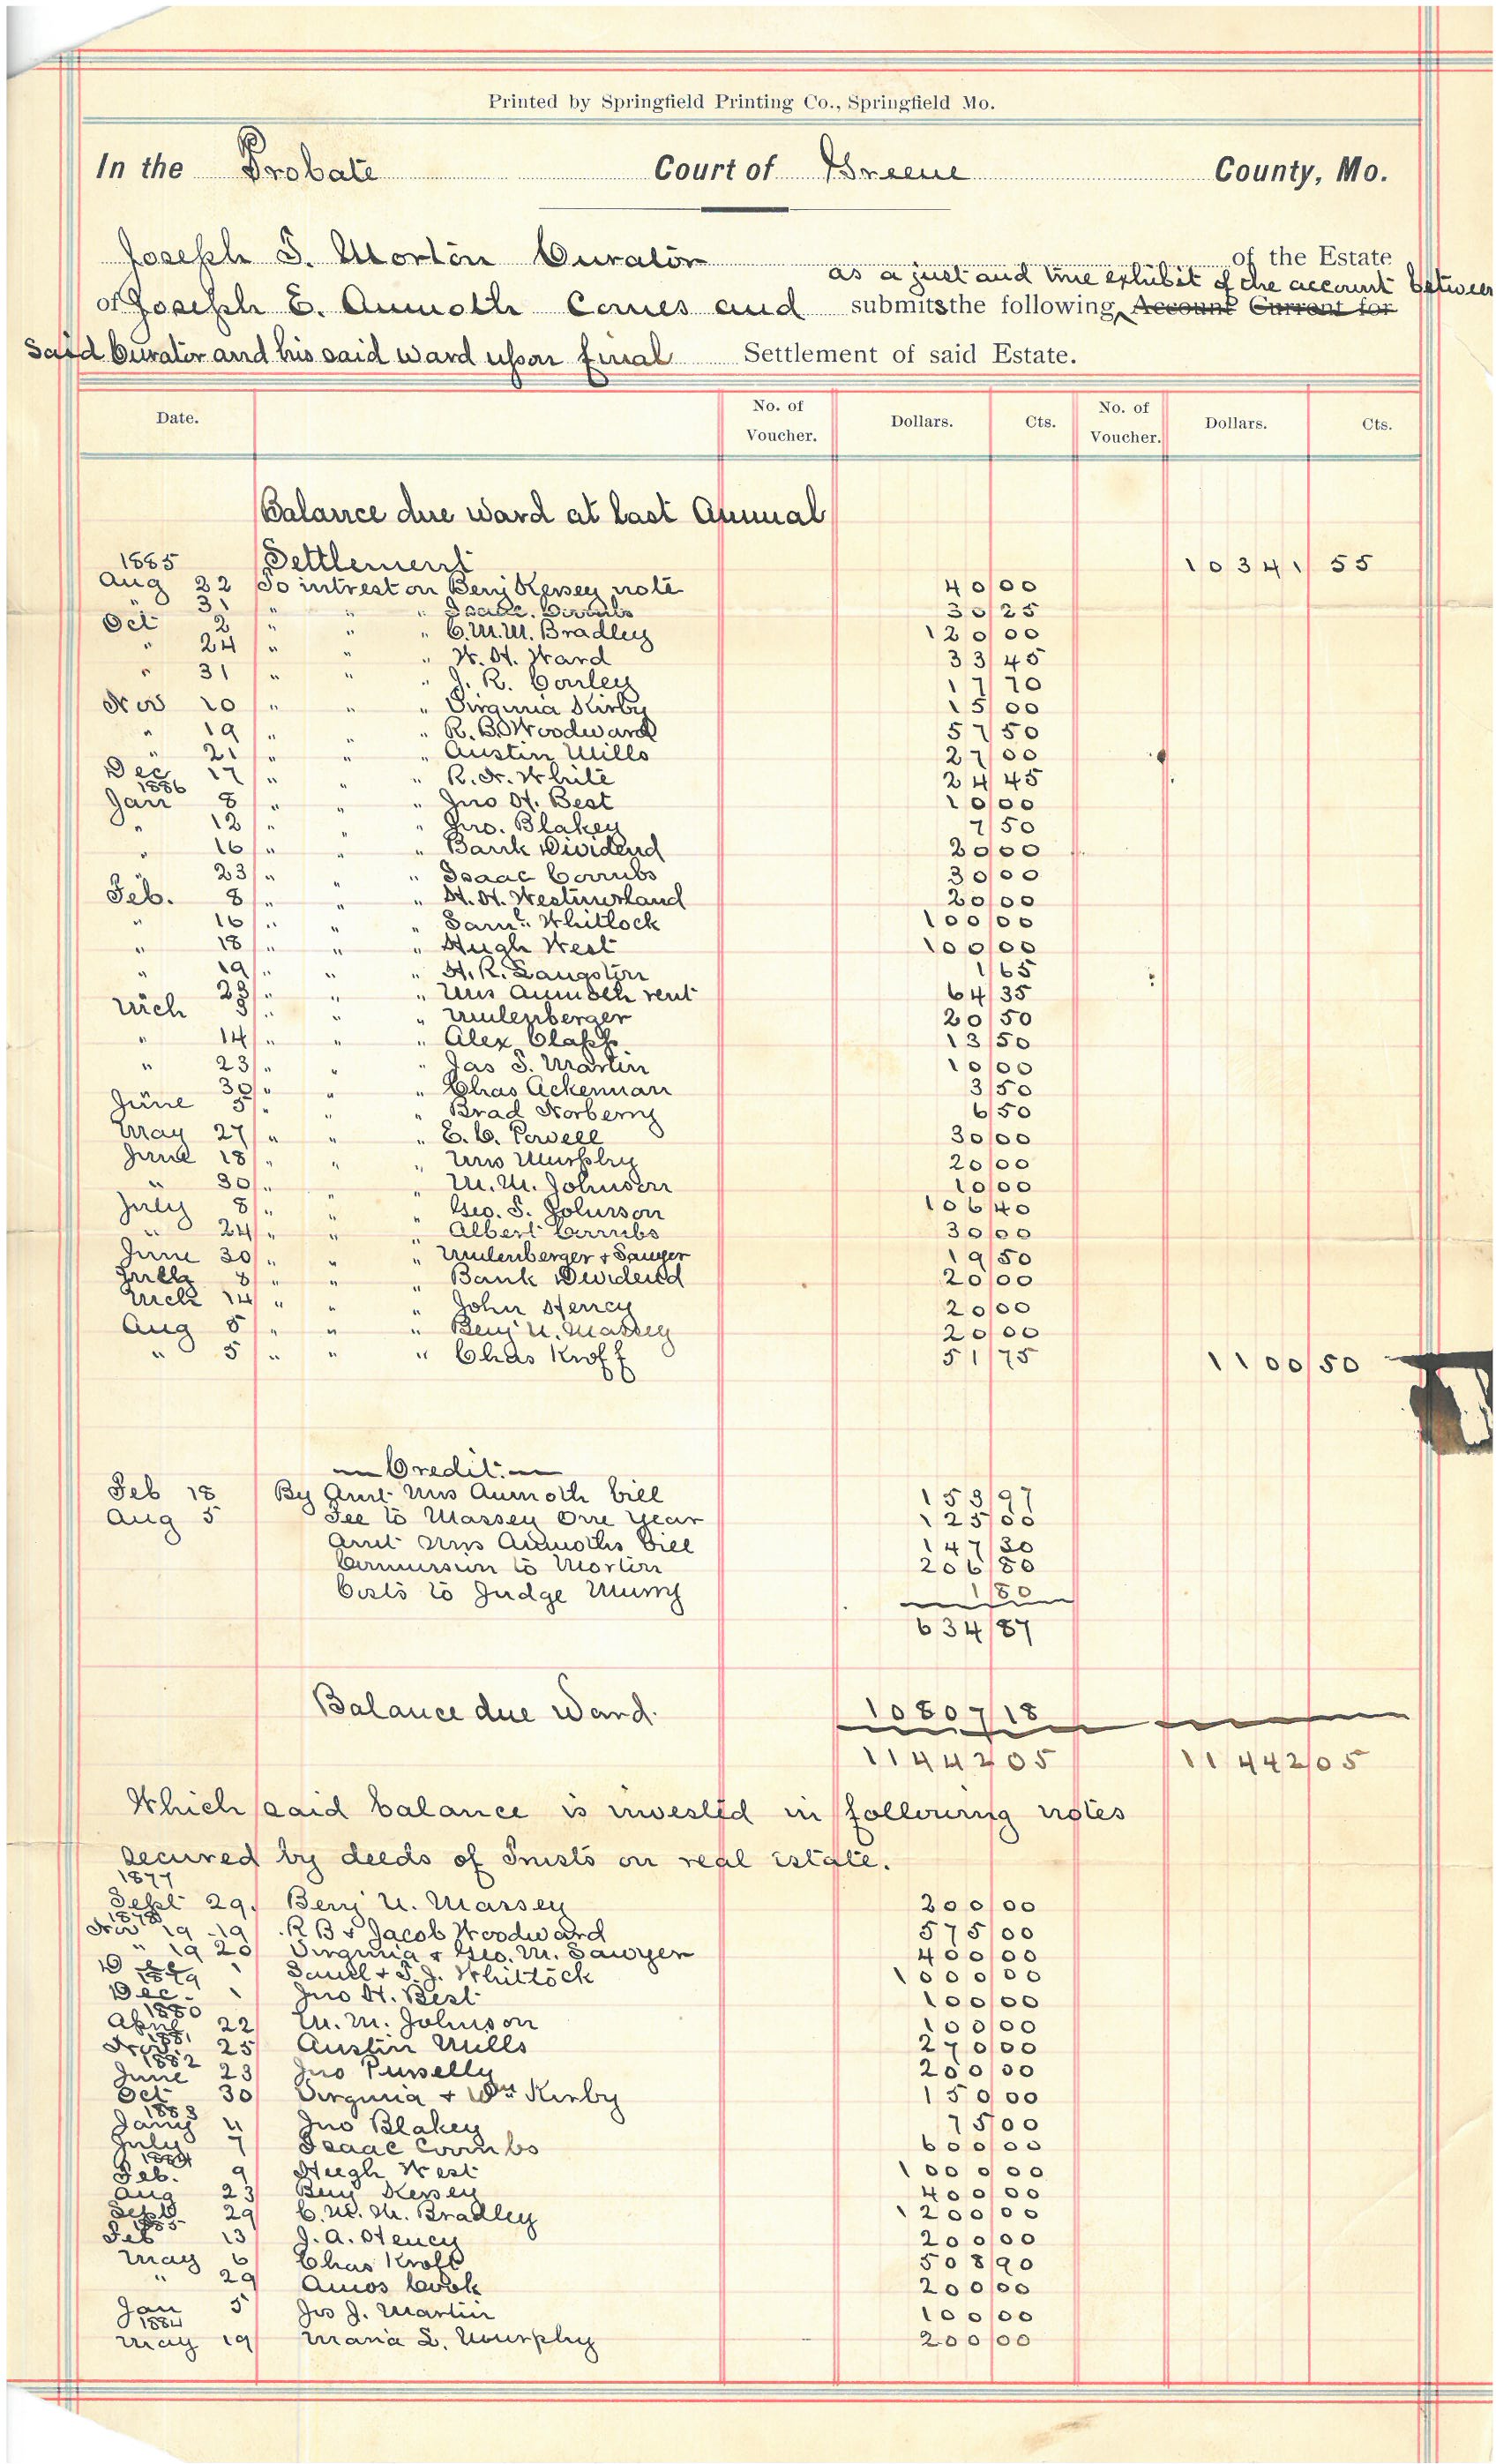 Printed by Springfield Printing Co., Springfield Mo.
In the Probate Court of Greene County, Mo.
Joseph T. Morton Curator of the Estate
as a just and true exhibit of the account between
of Joseph E. Aumoth Comes and submits the following Account Current for
Said Curator and his said ward upon final Settlement of said Estate.
Date. No. of Voucher. Dollars. Cts. No. of Voucher. Dollars. Cts.
Balance due ward at last Annual
1885 Settlement 10341 55
Aug 22 To intrest on Benj Kersey note 40 00
" 31 " " " Isaac 30 25
Oct 2 " " " C.M.M. Bradley 120 00
" 24 " " " W. H. Ward 33 45
" 31 " " " J. R. Conley 17 70
Nov 20 " " " Virginia Kirby 15 00
" 19 " " " R. B. Woodward 57 50
" 21 " " " Austin Mills 27 00
Dec 17 " " " R. N. White 24 45
1886
Jan 8 " " " Jno H. Best 10 00
" 12 " " " Jno. Blakey 7 50
" 16 " " " Bank Dividend 20 00
" 23 " " " Isaac Coombs 30 00
Feb. 8 " " " H. H. Westmorland 20 00
" 16 " " " Saml. Whitlock 100 00
" 18 " " " Hugh West 100 00
" 19 " " " H. R. Langston 1 65
" 23 " " " Mrs Aumoth rent 64 35
Mch 8 " " " Mulenberger 20 50
" 14 " " " Alex Clapp 13 50
" 23 " " " Jas T. Martin 10 00
" 30 " " " Chas Ackerman 3 50
June 5 " " " Brad Norberry 6 50
May 27 " " " E. C. Powell 30 00
June 18 " " " Mrs Murphy 20 00
" 30 " " " M. M. Johnson 10 00
July 8 " " " Geo. T. Johnson 106 40
" 24 " " " Albert Coombs 30 00
June 30 " " " Mulenberger & Sawyer 19 50
July 8 " " " Bank Dividend 20 00
Mch 14 " " " John Hency 20 00
Aug 5 " " " Benj U. Massey 20 00
" 5 " " " Chas Kroff 51 75 1100 50
Credit.
Feb 18 By Amt Mrs Aumoth bill 153 97
Aug 5 Fee to Massey One Year 125 00
Amt Mrs Aumoths bill 147 30
Commission to Morton 206 80
Costs to Judge 1 80
634 87
Balance due Ward. 10807 18
11442 05 11442 05
Which said balance is invested in following notes
secured by deeds of Trusts on real estate.
1877
Sept 29. Benj U. Massey 200 00
1878
Nov 19 19 R B & Jacob Woodward 575 00
" 19 20 Virginia & Geo. M. Sawyer 400 00
Dec 1 Saml & T. J. Whitlock 1000 00
1879
Dec. 1 Jno H. Best 100 00
1880
April 22 M. M. Johnson 100 00
1881
Nov 25 Austin Mills 270 00
1882
June 23 Jno Purselly 200 00
Oct 30 Virginia & Wm Kirby 150 00
1883
Jany 4 Jno Blakey 75 00
July 7 Isaac Coombs 600 00
1884
Feb. 9 Hugh West 1000 00
Aug 23 Benj Kersey 400 00
Sept 29 C. M. M. Bradley 1200 00
1885
Feb 13 J. A. Hency 200 00
May 6 Chas Kroff 508 90
" 29 Amos Cook 200 00
Jan 5 Jas J. Martin 100 00
1884
May 19 Maria L. Murphy 200 00